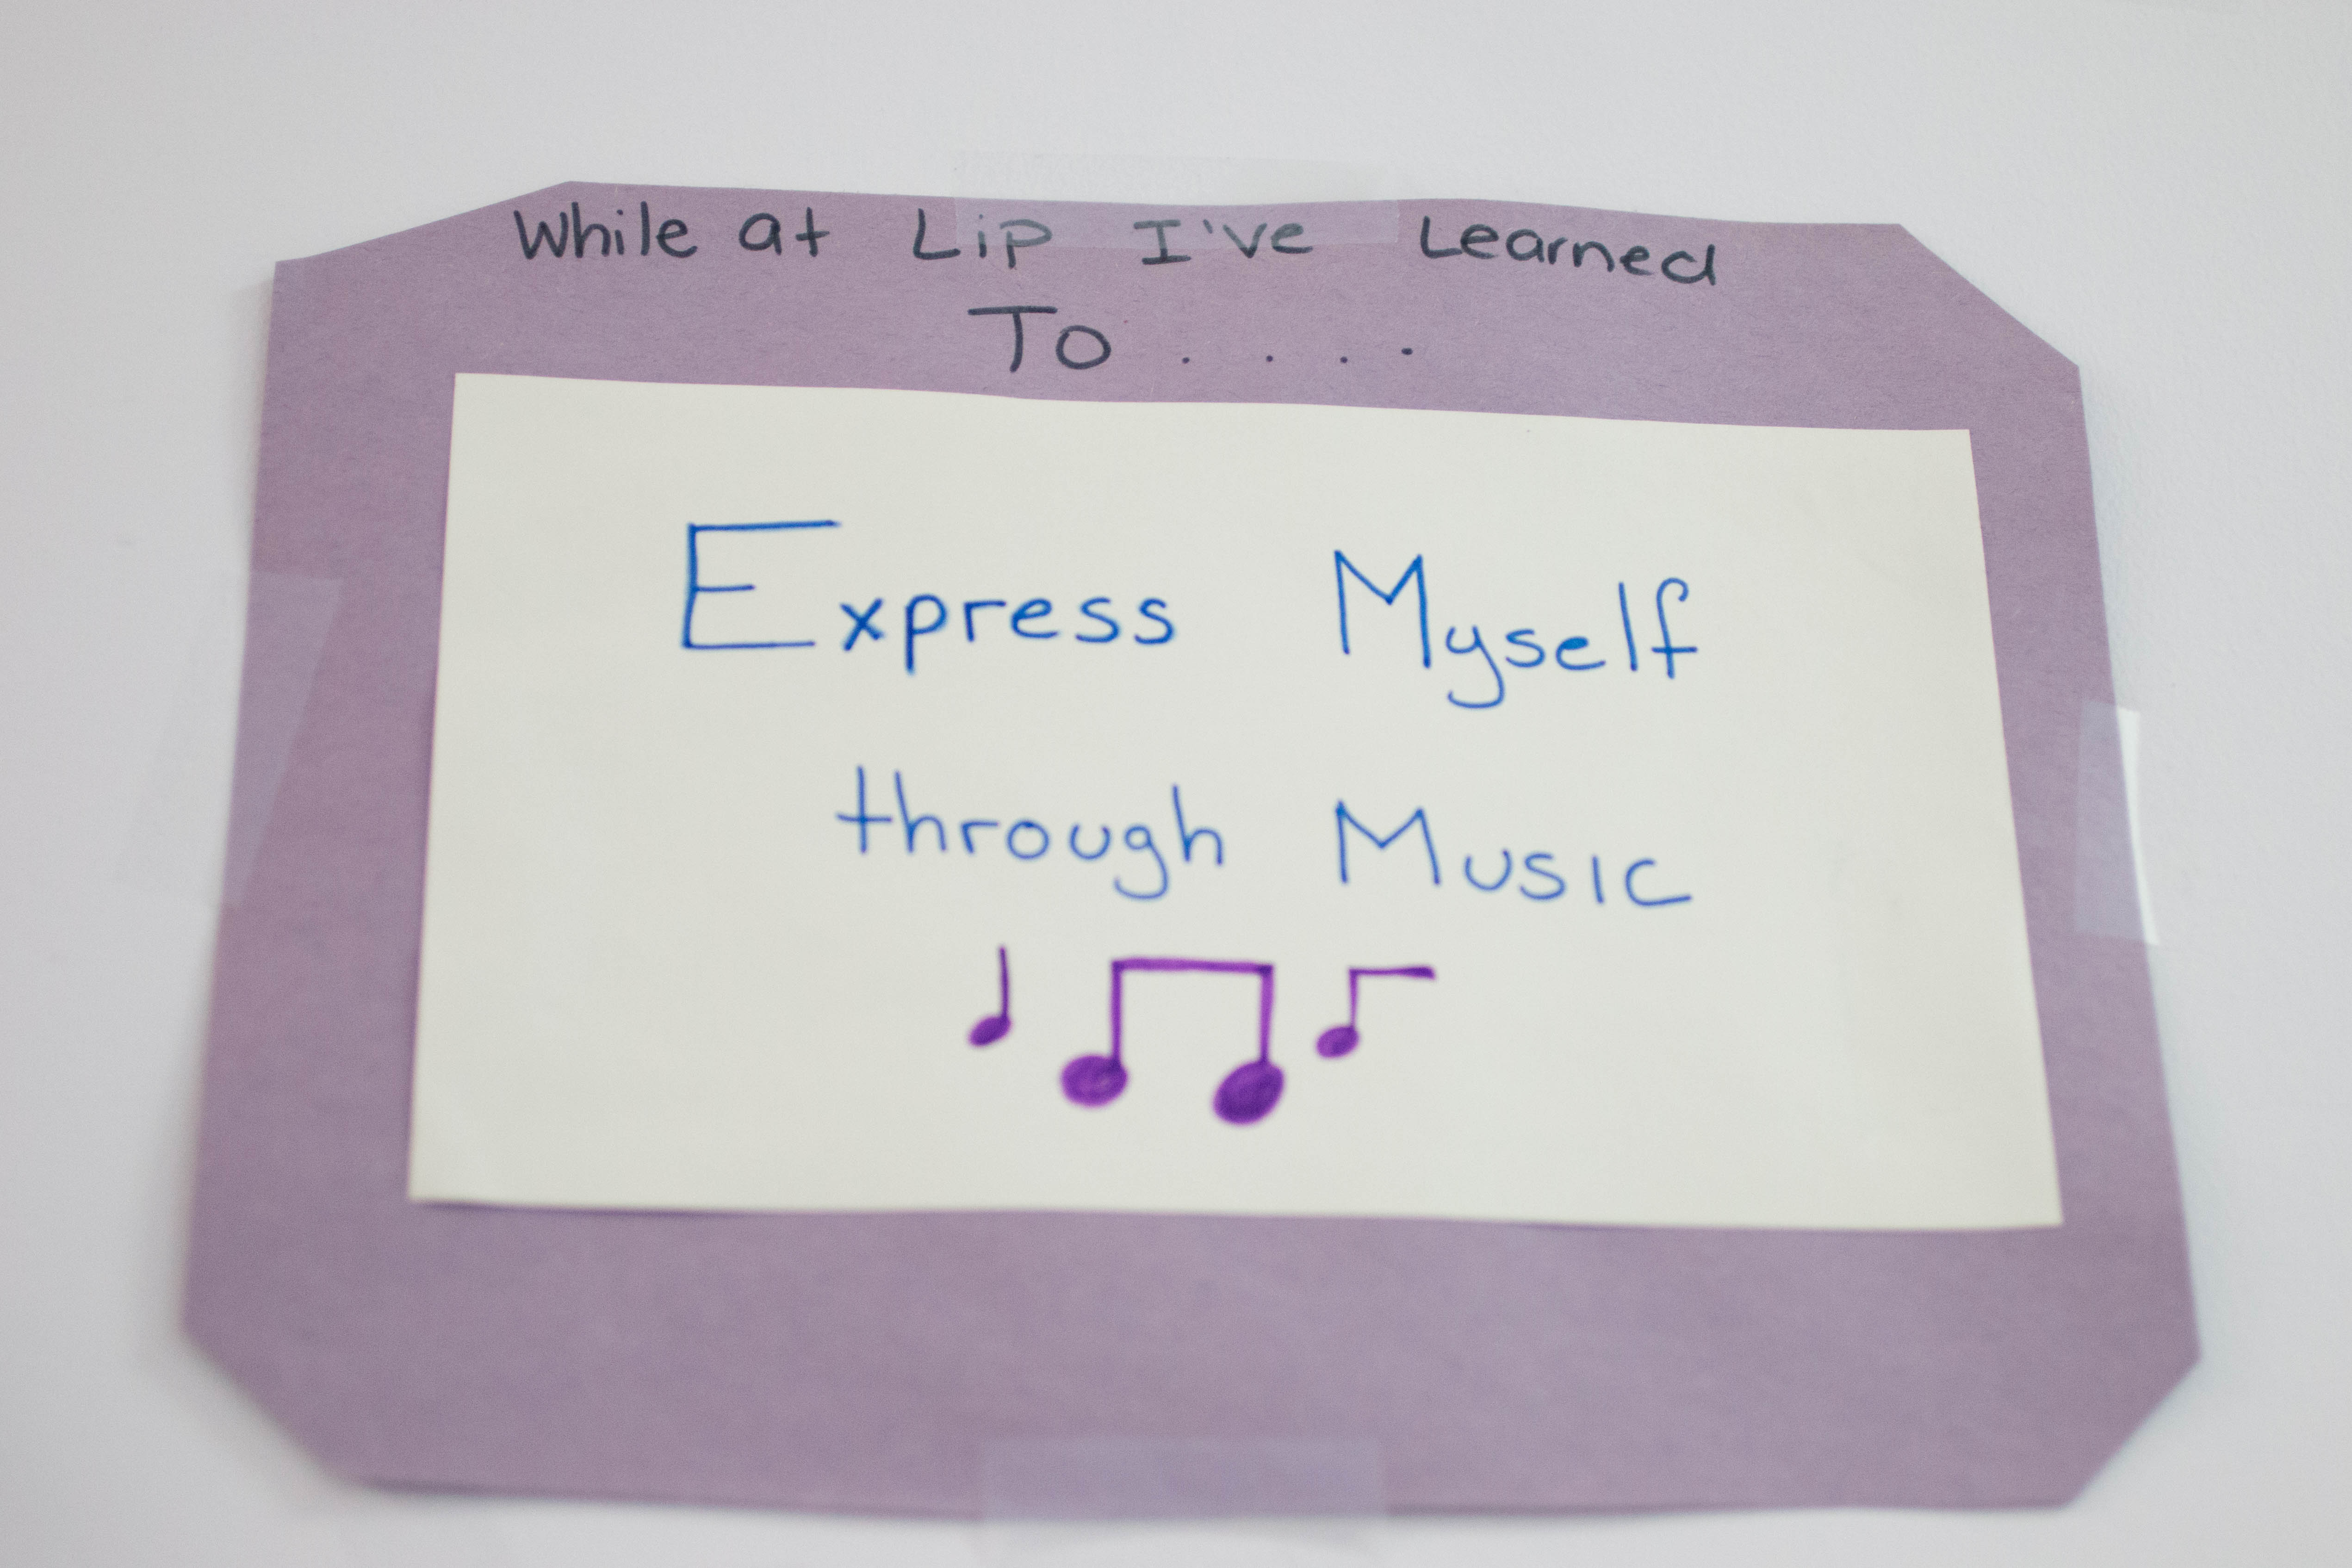 While at Lip I've Learned
To....
Express Myself
through Music